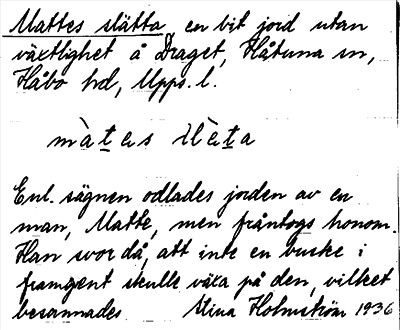 Mattes slätta, en bit jord utan
växtlighet å Draget, Håtuna sn,
Håbo hd, Upps. l.
màtes slèta
Enl. sägnen odlades jorden av en
man, Matte, men fråntogs honom.
Han svor då, att inte en buske i
framgent skulle växa på den, vilket
besannades Stina Holmström 1936